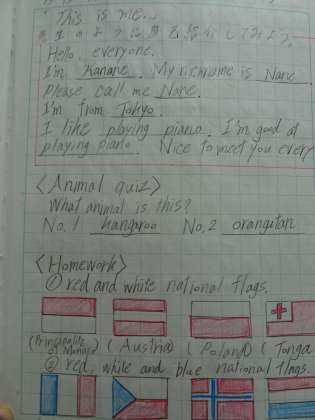 "This is me."
のように自己紹介してみよう。
Hello, everyone.
I'm Kanane. My nickname is Nane
Please call me Nane.
I'm from Tokyo.
I like playing piano. I'm good at
playing piano. Nice to meet you every
<Animal quiz>
What animal is this?
No.1 kangaroo No.2 orangutan
<Homework>
① red and white national flags.
(Principality of Monaco) (Austria) (Poland) (Tonga
② red, white and blue national flags.